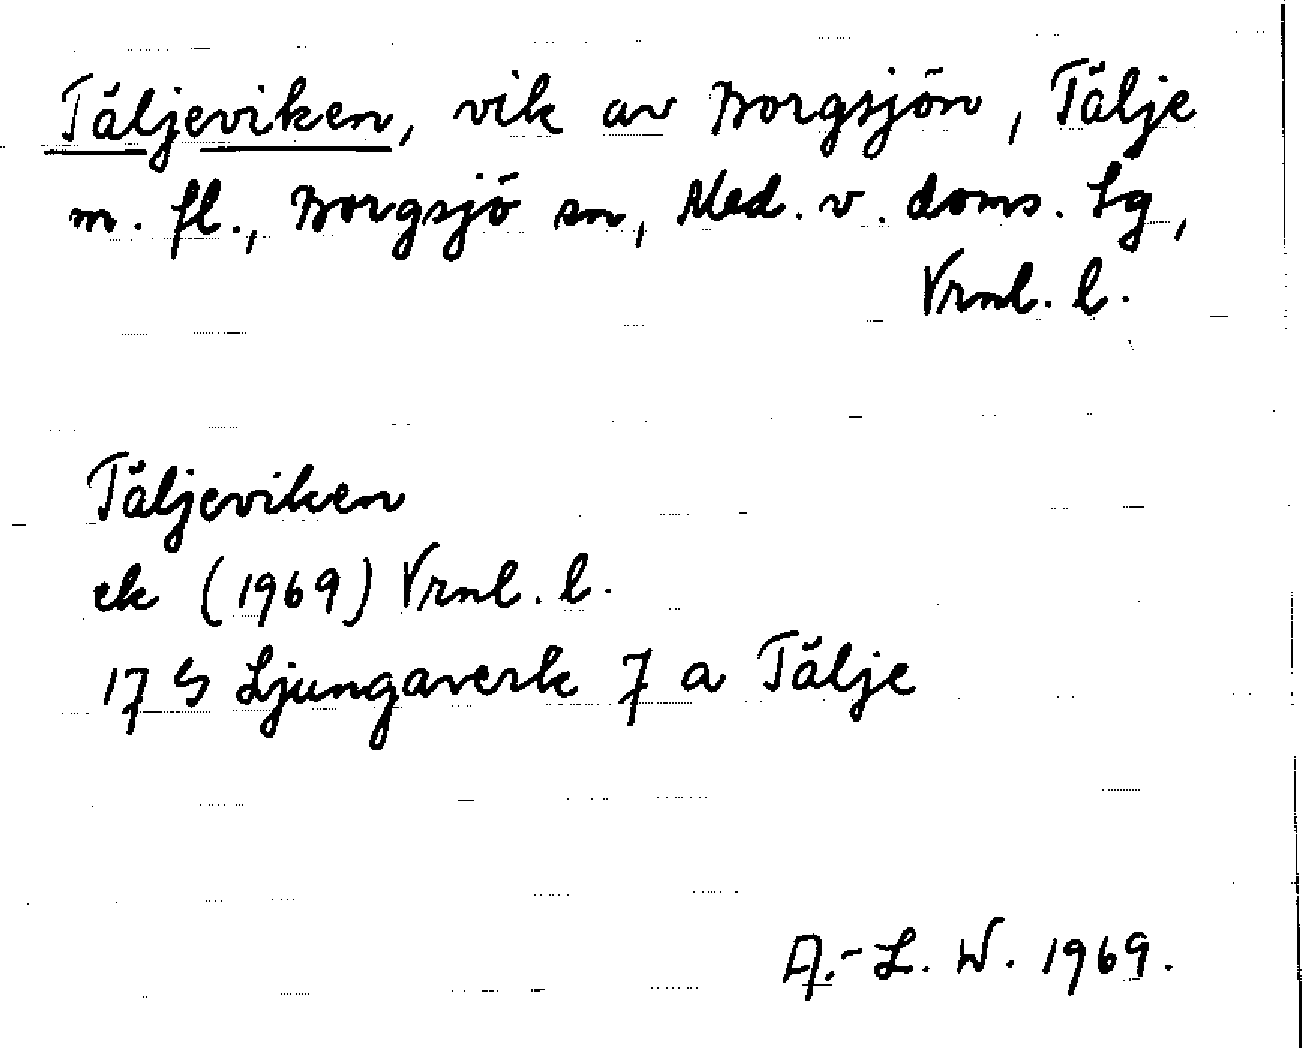 Täljeviken, vik av Borgsjön, Tälje
m. fl., Borgsjö sn, Med. v. doms. Lg,
Vrnl. l.
Täljeviken
ek (1969) Vrnl. l.
17 G Ljungaverk 7 a Tälje
A.-L. W. 1969.